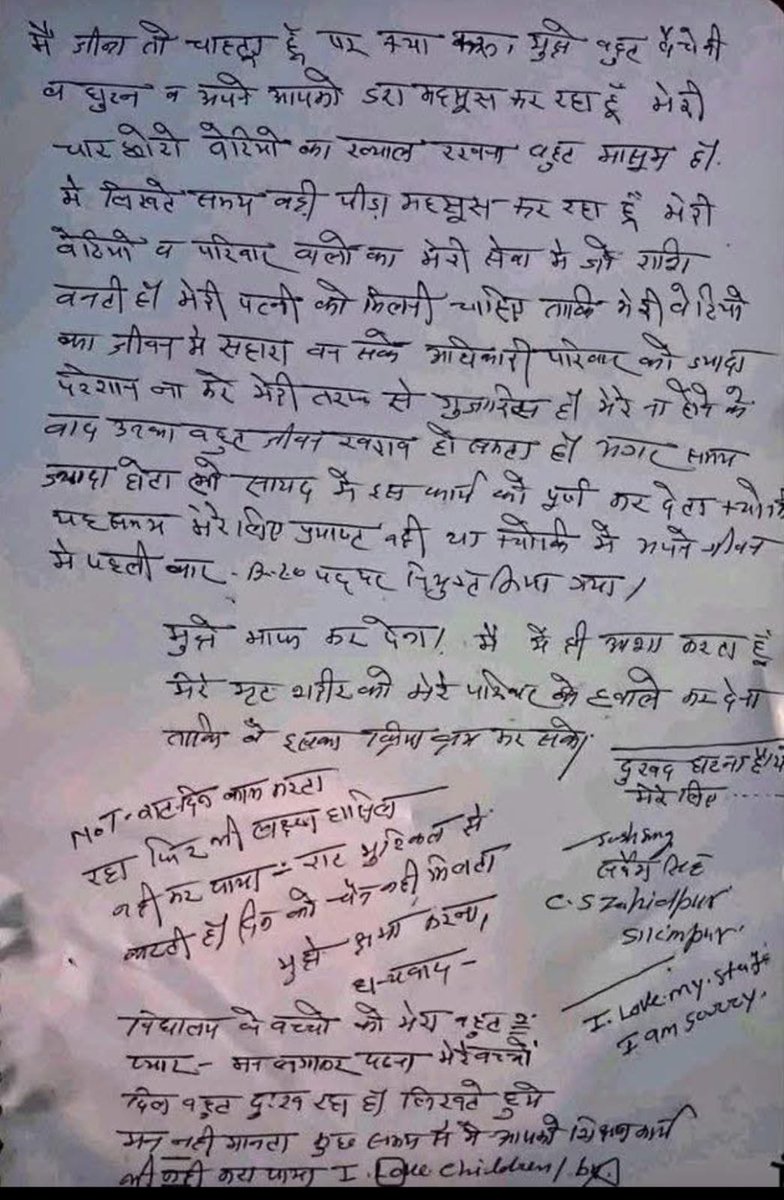 मै जीना तो चाहता हूँ पर क्या करू। मुझे बहुत बैचेनी
व घुटन व अपने आपको डरा महसूस कर रहा हूँ मेरी
चार छोटी बेटियो का ख्याल रखना बहुत मासूम हैं।
मे लिखते समय वही पीड़ा महसूस कर रहा हूँ मेरी
बेटियो व परिवार वालो का मेरी सेवा मे जो राशि
बनती हो मेरी पत्नी को मिलनी चाहिए ताकि मेरी बेटियो
का जीवन मे सहारा बन सके अधिकारी परिवार को ज्यादा
परेशान ना करे मेरी तरफ से गुजारिस हैं मेरे ना होने के
बाद उनका बहुत जीवन खराब हो सकता हैं अगर समय
ज्यादा होता तो सायद मै इस कार्य को पूर्ण कर देता क्योंकि
यह समय मेरे लिए प्रयाप्त नही था क्योकि मे अपने जीवन
मे पहली बार पद पर नियुक्त किया गया।
मुझे माफ कर देना। मै ये ही आशा करता हूँ
मेरे मृत शरीर को मेरे परिवार के हवाले कर देना
ताकि वे इसका क्रिया क्रम कर सके।
दुखद घटना है ये
मेरे लिए ......
NOT- रात-दिन काम करता
रहा फिर भी लक्ष्य हासिल
नही कर पाया रात मुश्किल से
कटती हैं दिन को चेन नही मिलता
मुझे क्षमा करना।
धन्यवाद -
सर्वेश सिंह
C.S Zahidpur
I. Love. my. staff
I am sorry.
विद्यालय के बच्चो को मेरा बहुत २
प्यार - मन लगाकर पढना मेरे बच्चो
दिल बहुत दुःख रहा हैं लिखते हुये
मन नही मानता कुछ समय से मै आपको शिक्षण कार्य
भी नही करा पाया I. Love children/ by.